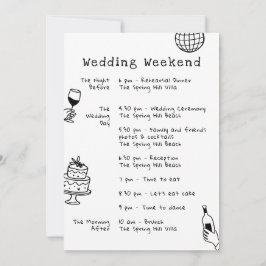 Wedding Weekend
The Night Before
6 pm - Rehearsal Dinner
The Spring Hill Villa
The Wedding Day
4.30 pm - Wedding Ceremony
The Spring Hill Beach
5.30 pm - Family and friends
photos & cocktails
The Spring Hill Beach
6.30 pm - Reception
The Spring Hill Beach
7 pm - Time to eat
8.30 pm - Let's eat cake
9 pm - Time to dance
The Morning After
10 am - Brunch
The Spring Hill Villa